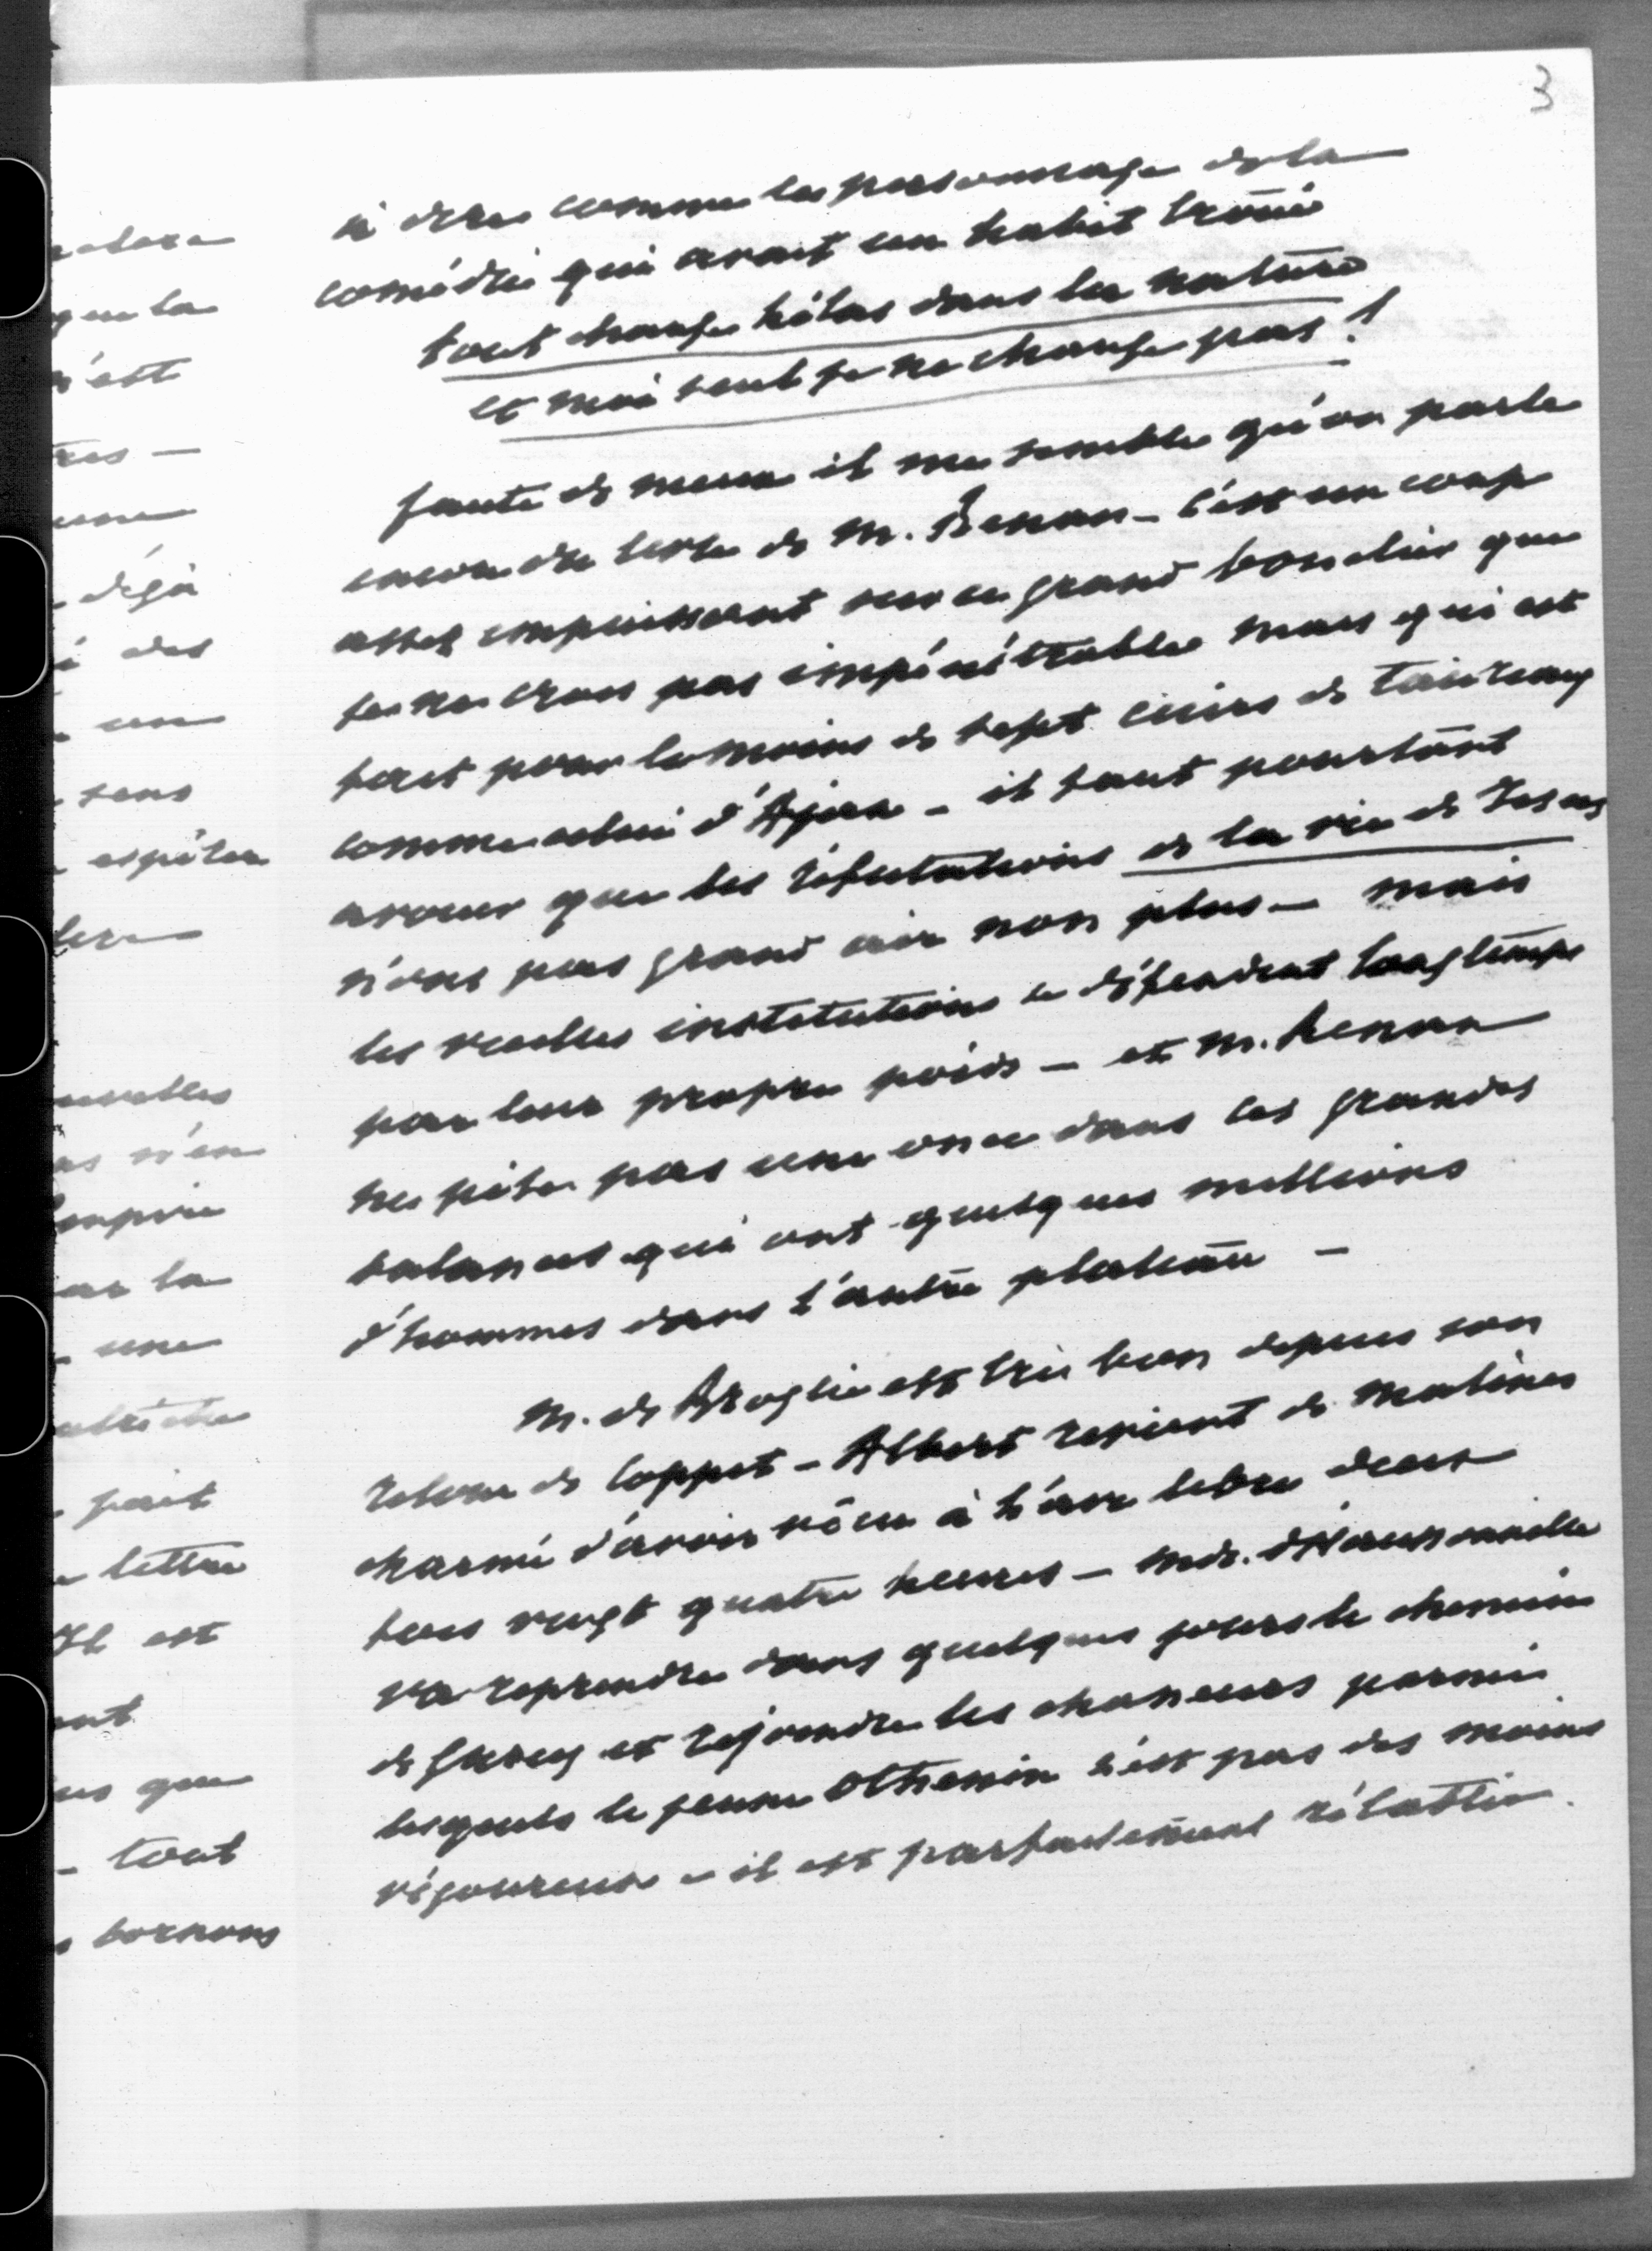 3
à dire comme le personnage de la
comédie qui avait un habit troué
tout change hélas dans la nature
et moi seul je ne change pas !
faute de mieux il me semble qu'on parle
encore du livre de M. Renan – c'est un coup
assez impuissant sur ce grand bouclier que
je ne crois pas impénétrable mais qui est
fait pour le moins de sept cuirs de taureaux
comme celui d'Ajax – il faut pourtant
avouer que les réfutations de la vie de Jesus
n'ont pas grand air non plus – mais
les vieilles institutions se défendent longtemps
par leur propre poids – et M. Renan
ne pèse pas une once dans les grandes
balances qui ont quelques millions
d'hommes dans l'autre plateau –
M. de Broglie est très bien depuis son
retour de Coppet – Albert revient de Malines
charmé d'avoir vécu à l'air libre deux
fois vingt quatre heures – Mde. d'Haussonville
va reprendre dans quelques jours le chemin
de Gurcy et rejoindre les chasseurs parmi
lesquels le jeune Othenin n'est pas des moins
vigoureux – il est parfaitement rétabli.
que la
n'est
une
déjà
des
un
sens
espérer
n'en
empire
par la
une
fait
lettre
Il est
que
– tout
bornons